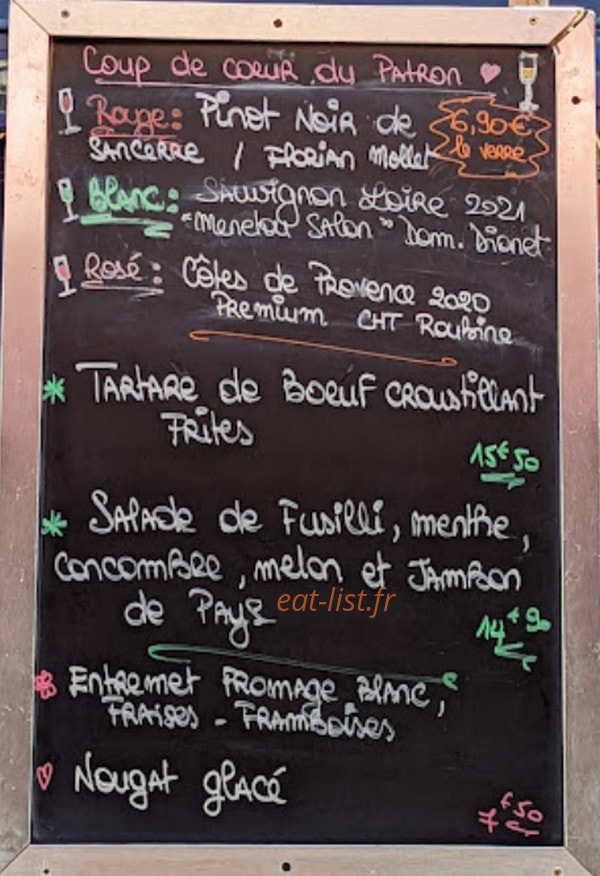 Coup de coeur du Patron
Rouge: Pinot Noir de
Sancerre / Florian Mollet
6,90€
le verre
Blanc: Sauvignon Loire 2021
"Menetou Salon" Dom. Dionet
Rosé: Côtes de Provence 2020
Premium CHT Roubine
Tartare de Boeuf croustillant
Frites
15€50
Salade de Fusilli, menthe,
concombre, melon et Jambon
de Pays
eat-list.fr
14€90
Entremet Fromage Blanc,
Fraises - Framboises
Nougat glacé
7€50